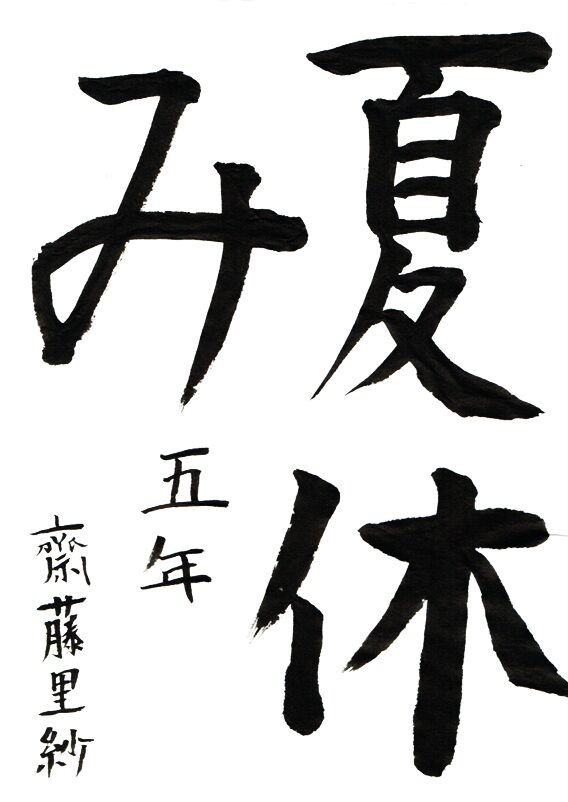 夏休
み
五年
齋藤里紗